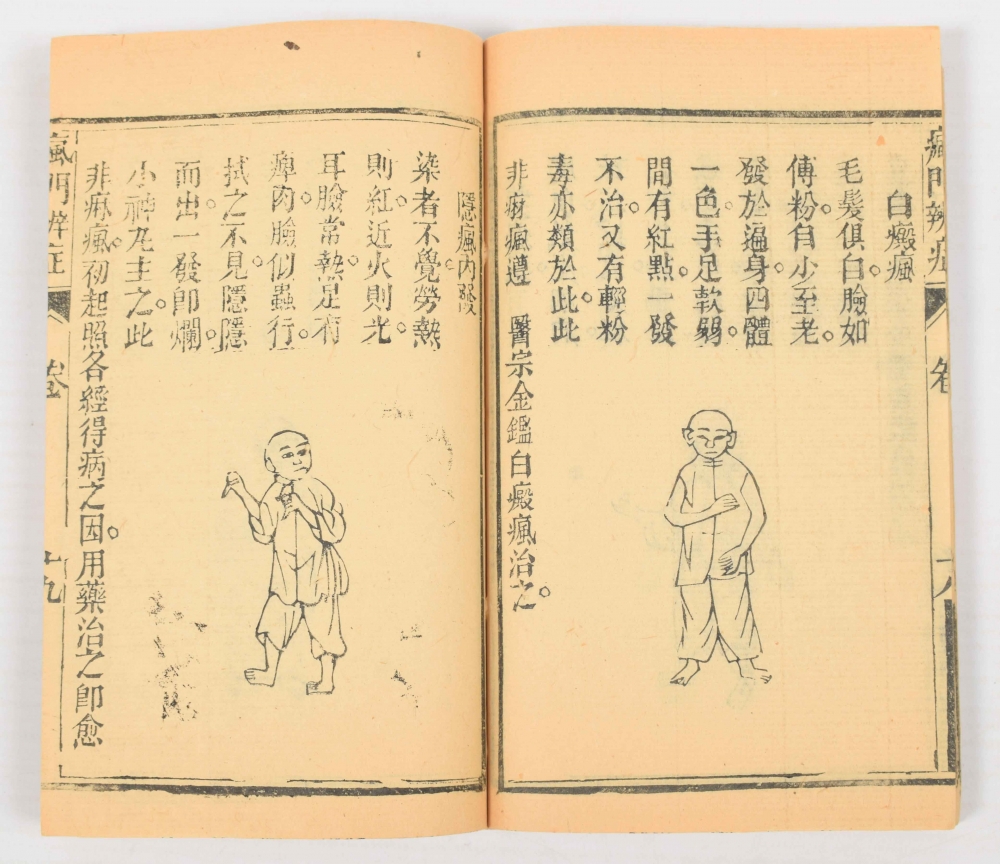 白癜瘋
毛髮俱白。臉如
傅粉。自少至老。
發於遍身。四體
一色。手足軟弱。
間有紅點。一發
不治。又有輕粉
毒亦類於此。此
非痳瘋遵 醫宗金鑑白癜瘋治之。
隱瘋內發
染者不覺。勞熱
則紅。近火則光。
耳臉常熱。足有
痺肉。臉似蟲行。
拭之不見。隱隱
而出。一發即爛。
小神丸主之。此
非痳瘋。初起照各經得病之因。用藥治之即愈
瘋門辨症
卷
十九